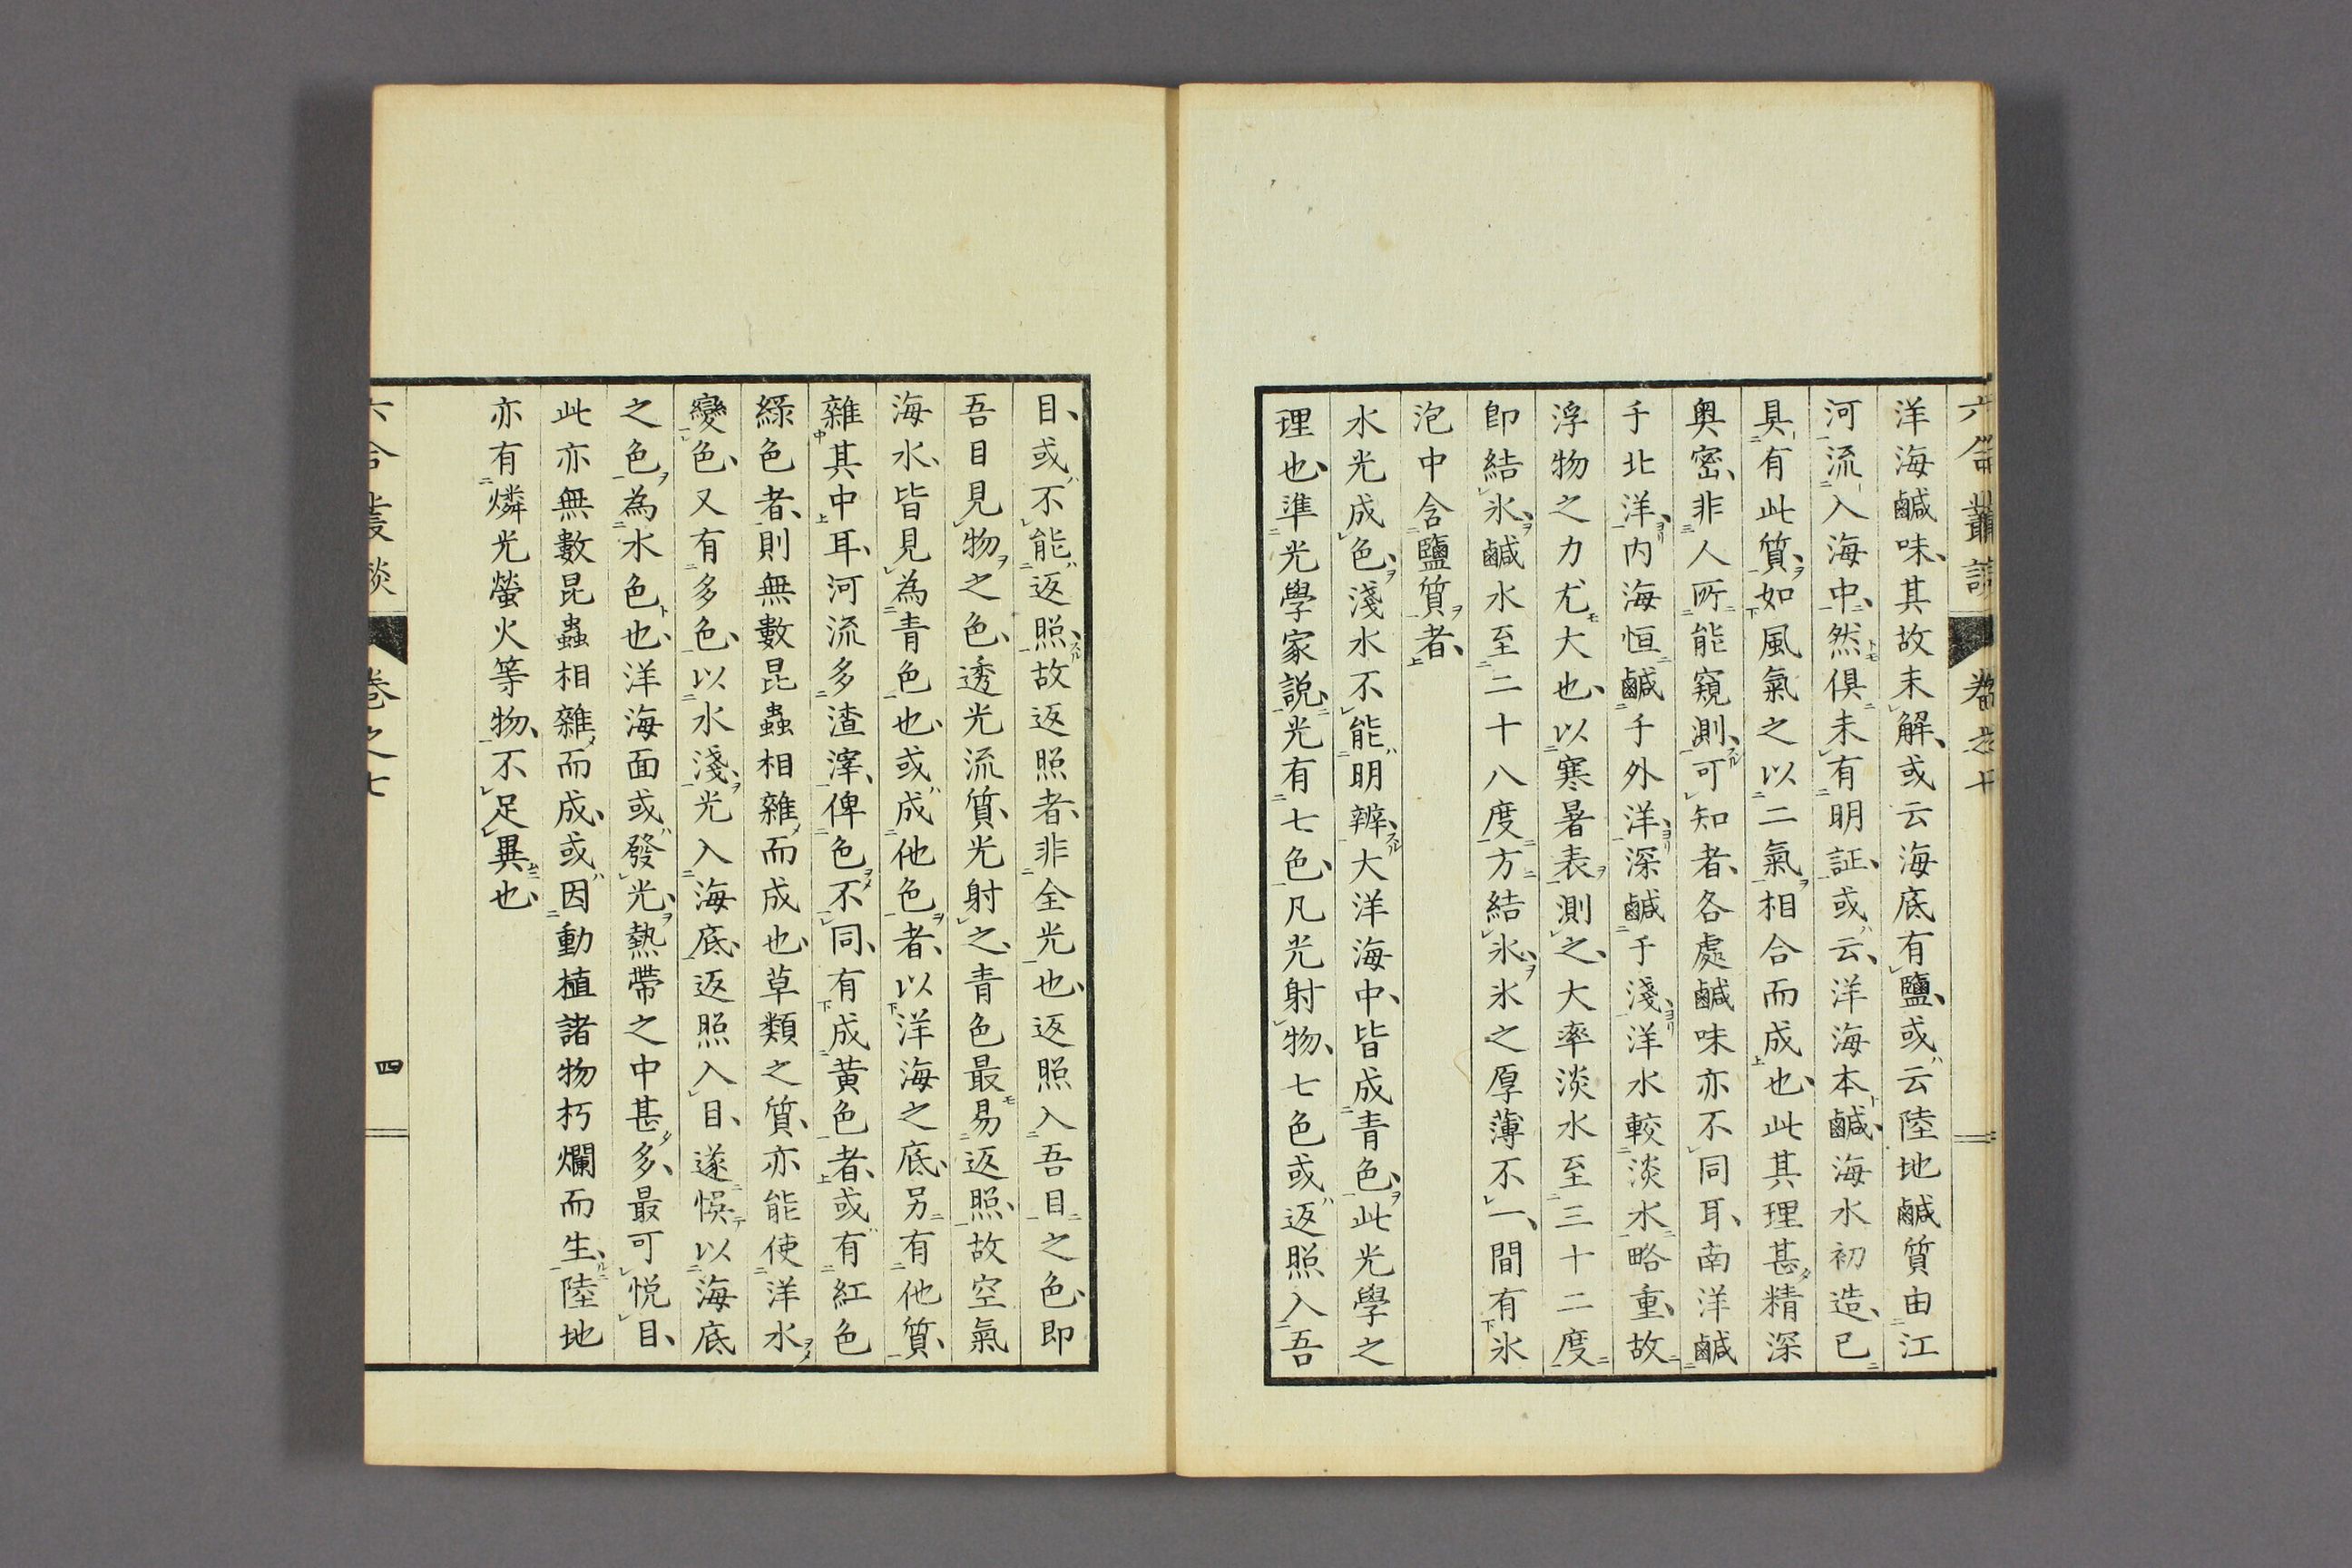 六合叢談 卷之七
洋海鹹味、其故未解、或云海底有鹽、或云陸地鹹質由江
河流入海中、然俱未有明証、或云、洋海本鹹、海水初造、已
具有此質、如風氣之以二氣相合而成也、此其理甚精深
奥密、非人所能窺測、可知者、各處鹹味亦不同耳、南洋鹹
于北洋、内海恒鹹于外洋、深鹹于淺、洋水較淡水略重、故
浮物之力尤大也、以寒暑表測之、大率淡水至三十二度
即結氷、鹹水至二十八度方結氷、氷之厚薄不一、間有氷
泡中含鹽質者、
水光成色、淺水不能明辨、大洋海中、皆成青色、此光學之
理也、準光學家説、光有七色、凡光射物、七色或返照入吾
目、或不能返照、故返照者、非全光也、返照入吾目之色、即
吾目見物之色、透光流質、光射之、青色最易返照、故空氣
海水、皆見為青色也、或成他色者、以洋海之底、另有他質、
雜其中耳、河流多渣滓、俾色不同、有成黄色者、或有紅色
綠色者、則無數昆蟲相雜而成也、草類之質、亦能使洋水
變色、又有多色、以水淺、光入海底、返照入目、遂悞以海底
之色為水色也、洋海面或發光、熱帶之中甚多、最可悦目、
此亦無數昆蟲相雜而成、或因動植諸物朽爛而生、陸地
亦有燐光螢火等物、不足異也、
六合叢談 卷之七 四